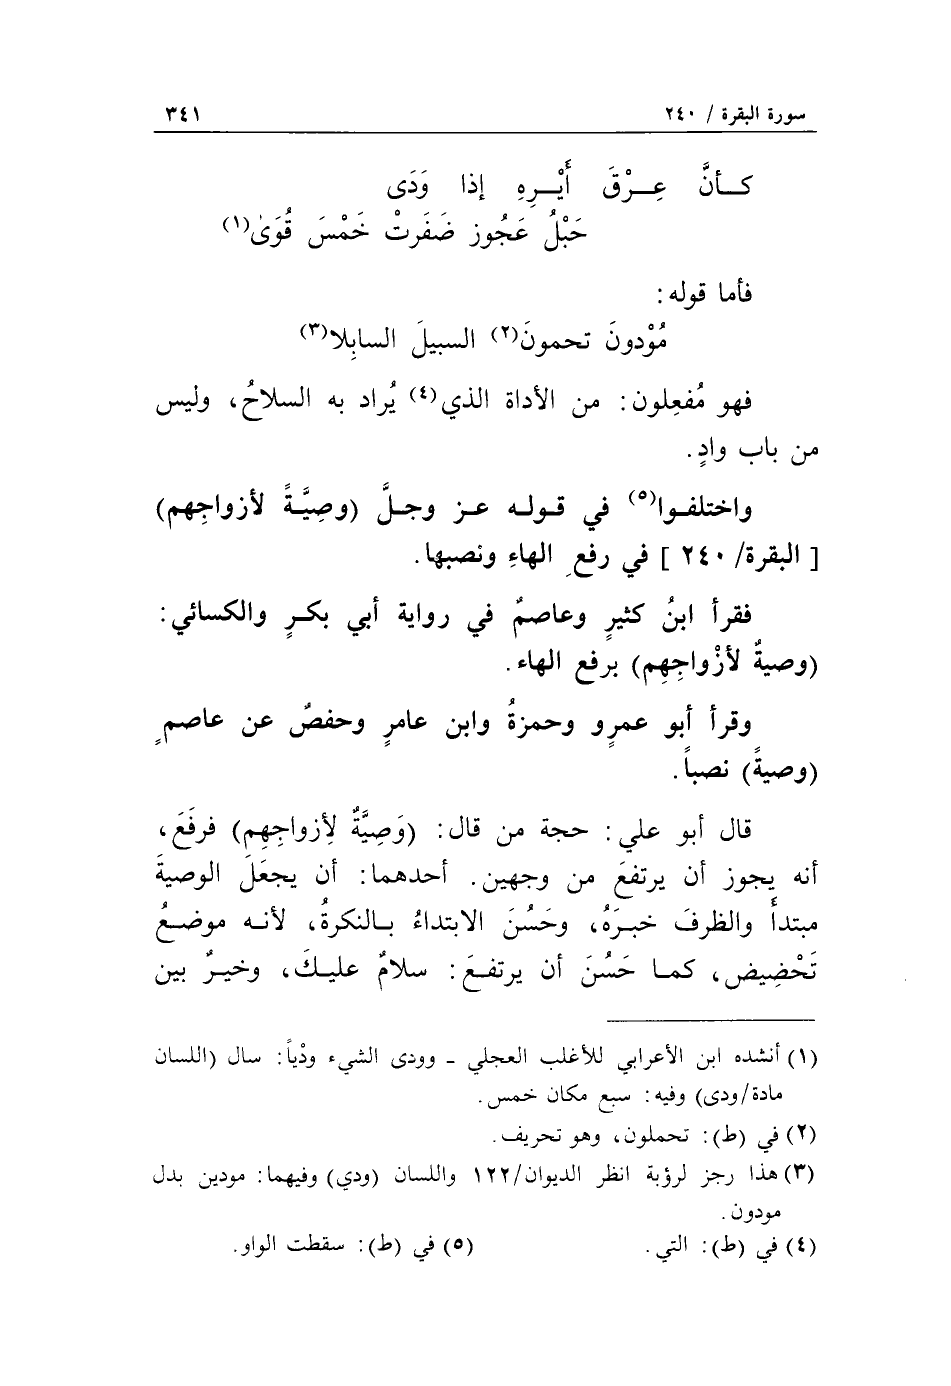 سورة البقرة / ٢٤٠ ٣٤١
كـأنَّ عِـرْقَ أَيْـرِهِ إذا وَدَى
حَبْلُ عَجُوز ضَفَرتْ خَمْسَ قُوَىٰ(١)
فأما قوله:
مُوْدونَ تحمونَ(٢) السبيلَ السابِلا(٣)
فهو مُفعِلون: من الأداة الذي(٤) يُراد به السلاحُ، وليس
من باب وادٍ.
واختلفـوا(٥) في قـولـه عـز وجـلَّ (وصِيَّـةً لأزواجِهم)
[ البقرة/ ٢٤٠ ] في رفعِ الهاءِ ونصبها.
فقرأ ابنُ كثيرٍ وعاصمٌ في رواية أبي بكـرٍ والكسائي:
(وصيةٌ لأزْواجِهِم) برفع الهاء.
وقرأ أبو عمرٍو وحمزةُ وابن عامرٍ وحفصٌ عن عاصمٍ
(وصيةً) نصباً.
قال أبو علي: حجة من قال: (وَصِيَّةٌ لِأزواجِهِم) فرفَعَ،
أنه يجوز أن يرتفعَ من وجهين. أحدهمـا: أن يجعَلَ الوصيةَ
مبتدأً والظرفَ خبـرَهُ، وحَسُنَ الابتداءُ بـالنكرةُ، لأنـه موضـعُ
تَحْضِيض، كمـا حَسُنَ أن يرتفـعَ: سلامٌ عليـكَ، وخيـرٌ بين
(١) أنشده ابن الأعرابي للأغلب العجلي ـ وودى الشيء ودْياً: سال (اللسان
مادة/ودى) وفيه: سبع مكان خمس.
(٢) في (ط): تحملون، وهو تحريف.
(٣) هذا رجز لرؤبة انظر الديوان/١٢٢ واللسان (ودي) وفيهما: مودين بدل
مودون.
(٤) في (ط): التي. (٥) في (ط): سقطت الواو.